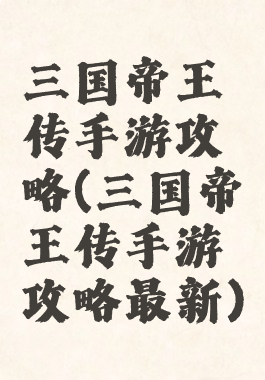 三国帝王
传手游攻
略(三国帝
王传手游
攻略最新)